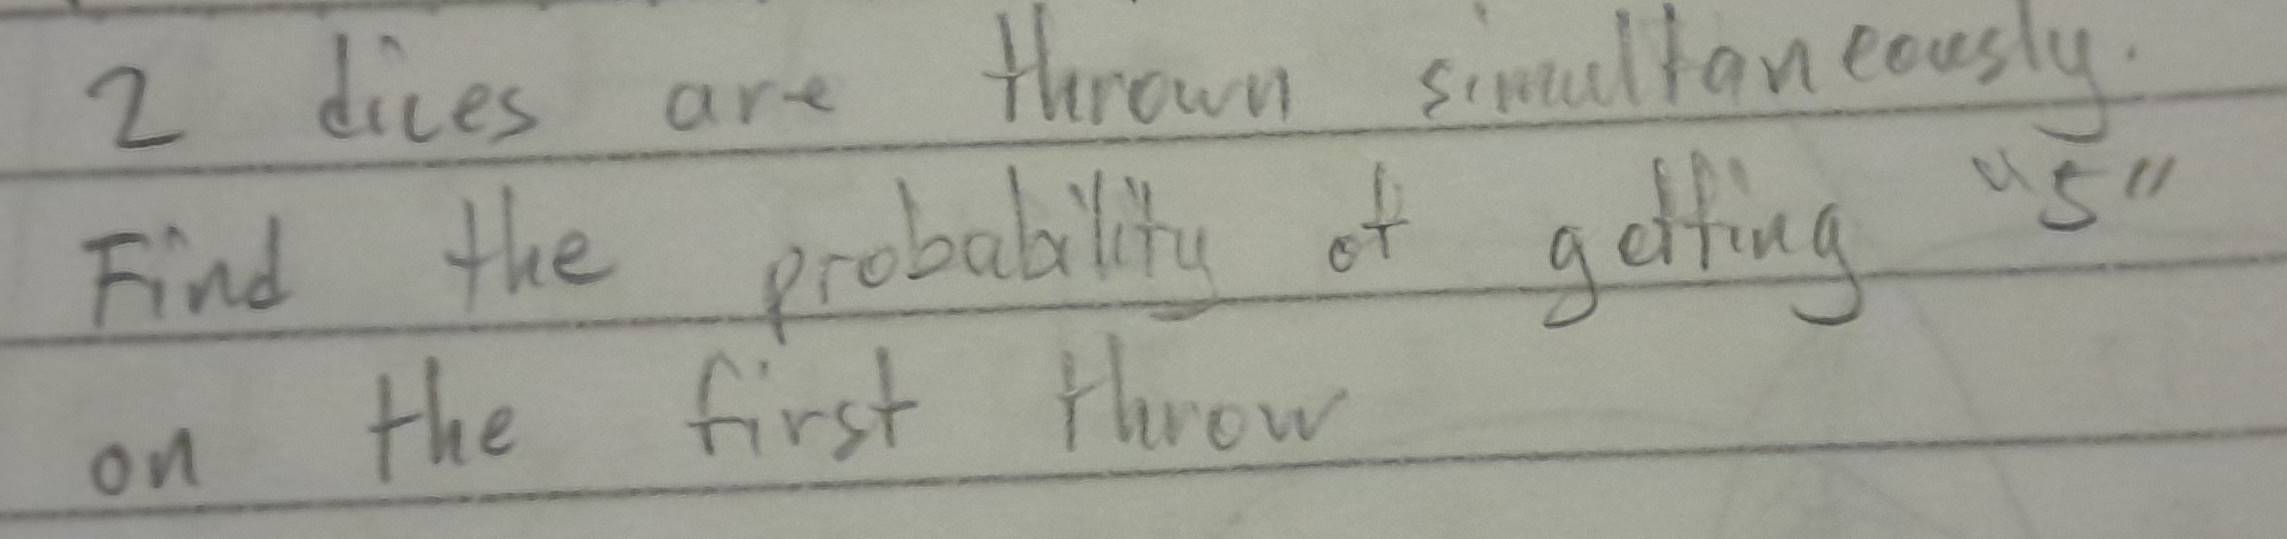 2 dices are thrown simultaneously.
Find the probability of getting "5"
on the first throw